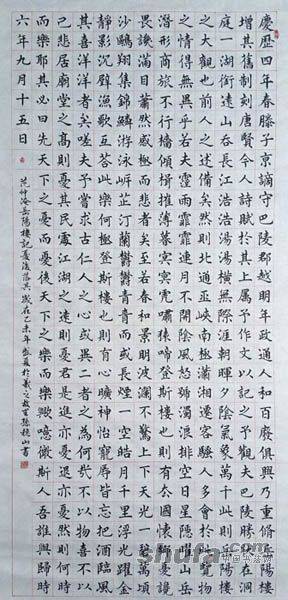 慶歷四年春滕子京謫守巴陵郡越明年政通人和百廢俱興乃重脩岳陽樓
增其舊制刻唐賢今人詩賦於其上屬予作文以記之予觀夫巴陵勝狀在洞
庭一湖銜遠山吞長江浩浩湯湯橫無際涯朝暉夕陰氣象萬千此則岳陽樓
之大觀也前人之述備矣然則北通巫峽南極瀟湘遷客騷人多會於此覽物
之情得無異乎若夫霪雨霏霏連月不開陰風怒號濁浪排空日星隱曜山岳
潛形商旅不行檣傾楫摧薄暮冥冥虎嘯猿啼登斯樓也則有去國懷鄉憂讒
畏譏滿目蕭然感極而悲者矣至若春和景明波瀾不驚上下天光一碧萬頃
沙鷗翔集錦鱗游泳岸芷汀蘭鬱鬱青青而或長煙一空皓月千里浮光躍金
靜影沉璧漁歌互答此樂何極登斯樓也則有心曠神怡寵辱皆忘把酒臨風
其喜洋洋者矣嗟夫予嘗求古仁人之心或異二者之為何哉不以物喜不以
己悲居廟堂之高則憂其民處江湖之遠則憂其君是進亦憂退亦憂然則何時
而樂耶其必曰先天下之憂而憂後天下之樂而樂歟噫微斯人吾誰與歸時
六年九月十五日
范仲淹岳陽樓記 歲在乙未年 山書
shufa.com